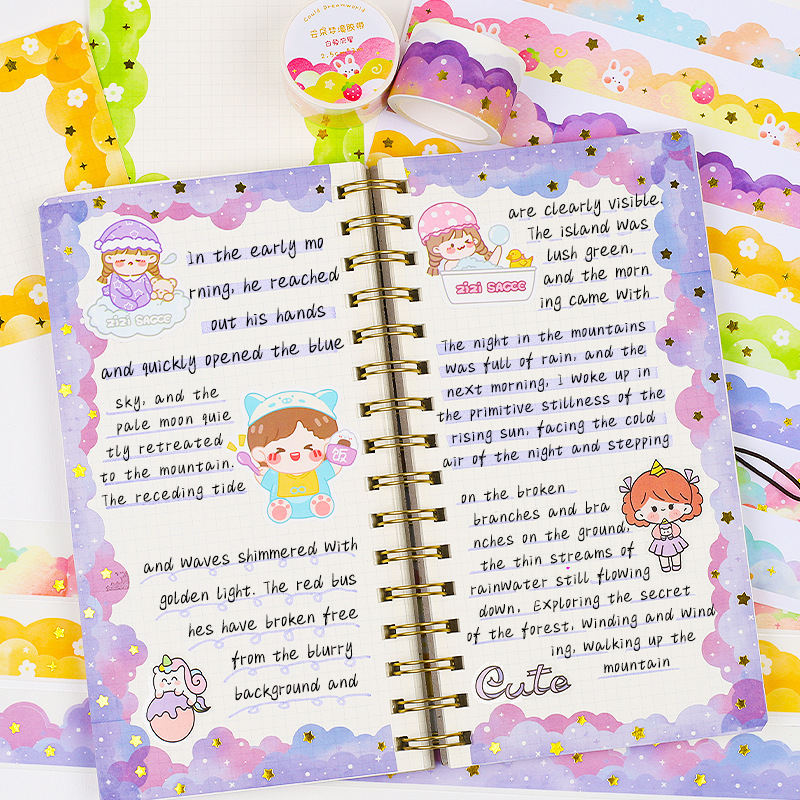 Could Dreamworld
In the early mo
rning, he reached
out his hands
and quickly opened the blue
zizi SAGCE
sky, and the
pale moon quie
tly retreated
to the mountain.
The receding tide
饭
and waves shimmered With
golden light. The red bus
hes have broken free
from the blurry
background and
are clearly visible.
The island was
lush green,
and the morn
ing came With
zizi SAGCE
The night in the mountains
was full of rain, and the
next morning, I woke up in
the primitive stillness of the
rising sun, facing the cold
air of the night and stepping
on the broken
branches and bra
nches on the ground,
the thin streams of
rainwater still flowing
down. Exploring the secret
of the forest, Winding and Wind
ing, Walking up the
mountain
Cute